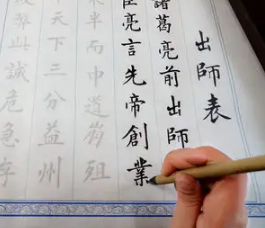 出師表
諸葛亮前出師
臣亮言先帝創業
未半而中道崩殂
天下三分益州
弊此誠危急存